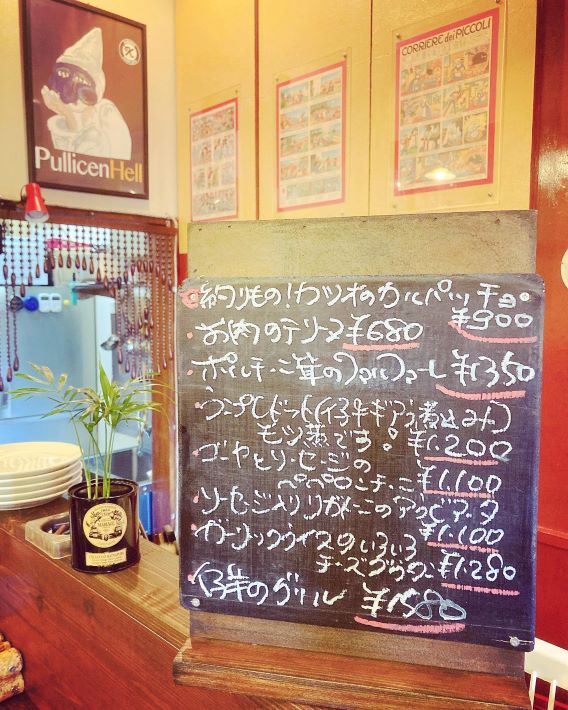 PullicenHell
CORRIERE dei PICCOLI
釣りもの!カツオのカルパッチョ。
¥900
お肉のテリーヌ ¥680
ポルチーニ茸のファルファーレ ¥1350
ランプレドット(仔牛ギアラ煮込み)
モツ煮です。 ¥1,200
ゴーヤとソーセージの
ペペロンチーニ ¥1,100
ソーセージ入りリガトーニのアラビアータ
¥1,100
ガーリックライスのいろいろ
チーズグラタン ¥1,280
仔羊のグリル ¥1580